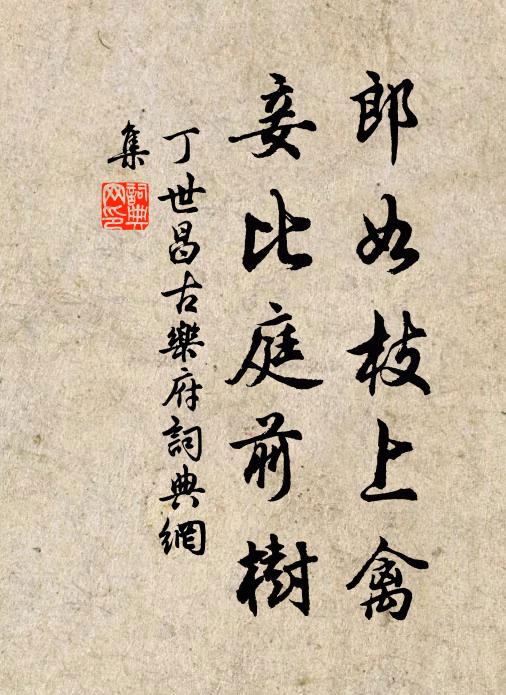 郎如枝上禽
妾比庭前樹
丁世昌古樂府詞典網
集
詞典
网印